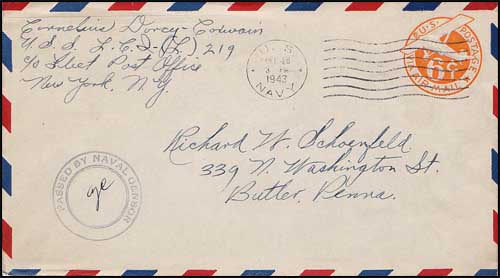 Cornelius Dorcy-Corwain
U.S.S. L.C.I.(L) 219
c/o Fleet Post Office
New York, N.Y.
U.S.
1943
NAVY
U.S. POSTAGE
6¢
VIA AIR MAIL
Richard W. Schoenfeld
339 N. Washington St.
Butler, Penna.
PASSED BY NAVAL CENSOR